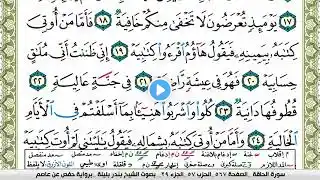 ١٧ يَوْمَئِذٍ تُعْرَضُونَ لَا تَخْفَىٰ مِنكُمْ خَافِيَةٌ ١٨ فَأَمَّا مَنْ أُوتِيَ
كِتَٰبَهُۥ بِيَمِينِهِۦ فَيَقُولُ هَآؤُمُ ٱقْرَءُوا۟ كِتَٰبِيَهْ ١٩ إِنِّي ظَنَنتُ أَنِّي مُلَٰقٍ
حِسَابِيَهْ ٢٠ فَهُوَ فِي عِيشَةٍ رَّاضِيَةٍ ٢١ فِي جَنَّةٍ عَالِيَةٍ ٢٢
قُطُوفُهَا دَانِيَةٌ ٢٣ كُلُوا۟ وَٱشْرَبُوا۟ هَنِيٓـًٔۢا بِمَآ أَسْلَفْتُمْ فِي ٱلْأَيَّامِ
ٱلْخَالِيَةِ ٢٤ وَأَمَّا مَنْ أُوتِيَ كِتَٰبَهُۥ بِشِمَالِهِۦ فَيَقُولُ يَٰلَيْتَنِي لَمْ أُوتَ كِتَٰبِيَهْ
سورة الحاقة . الصفحة ٥٦٧ الحزب ٥٧. الجزء ٢٩ . بصوت الشيخ بندر بليلة . برواية حفص عن عاصم